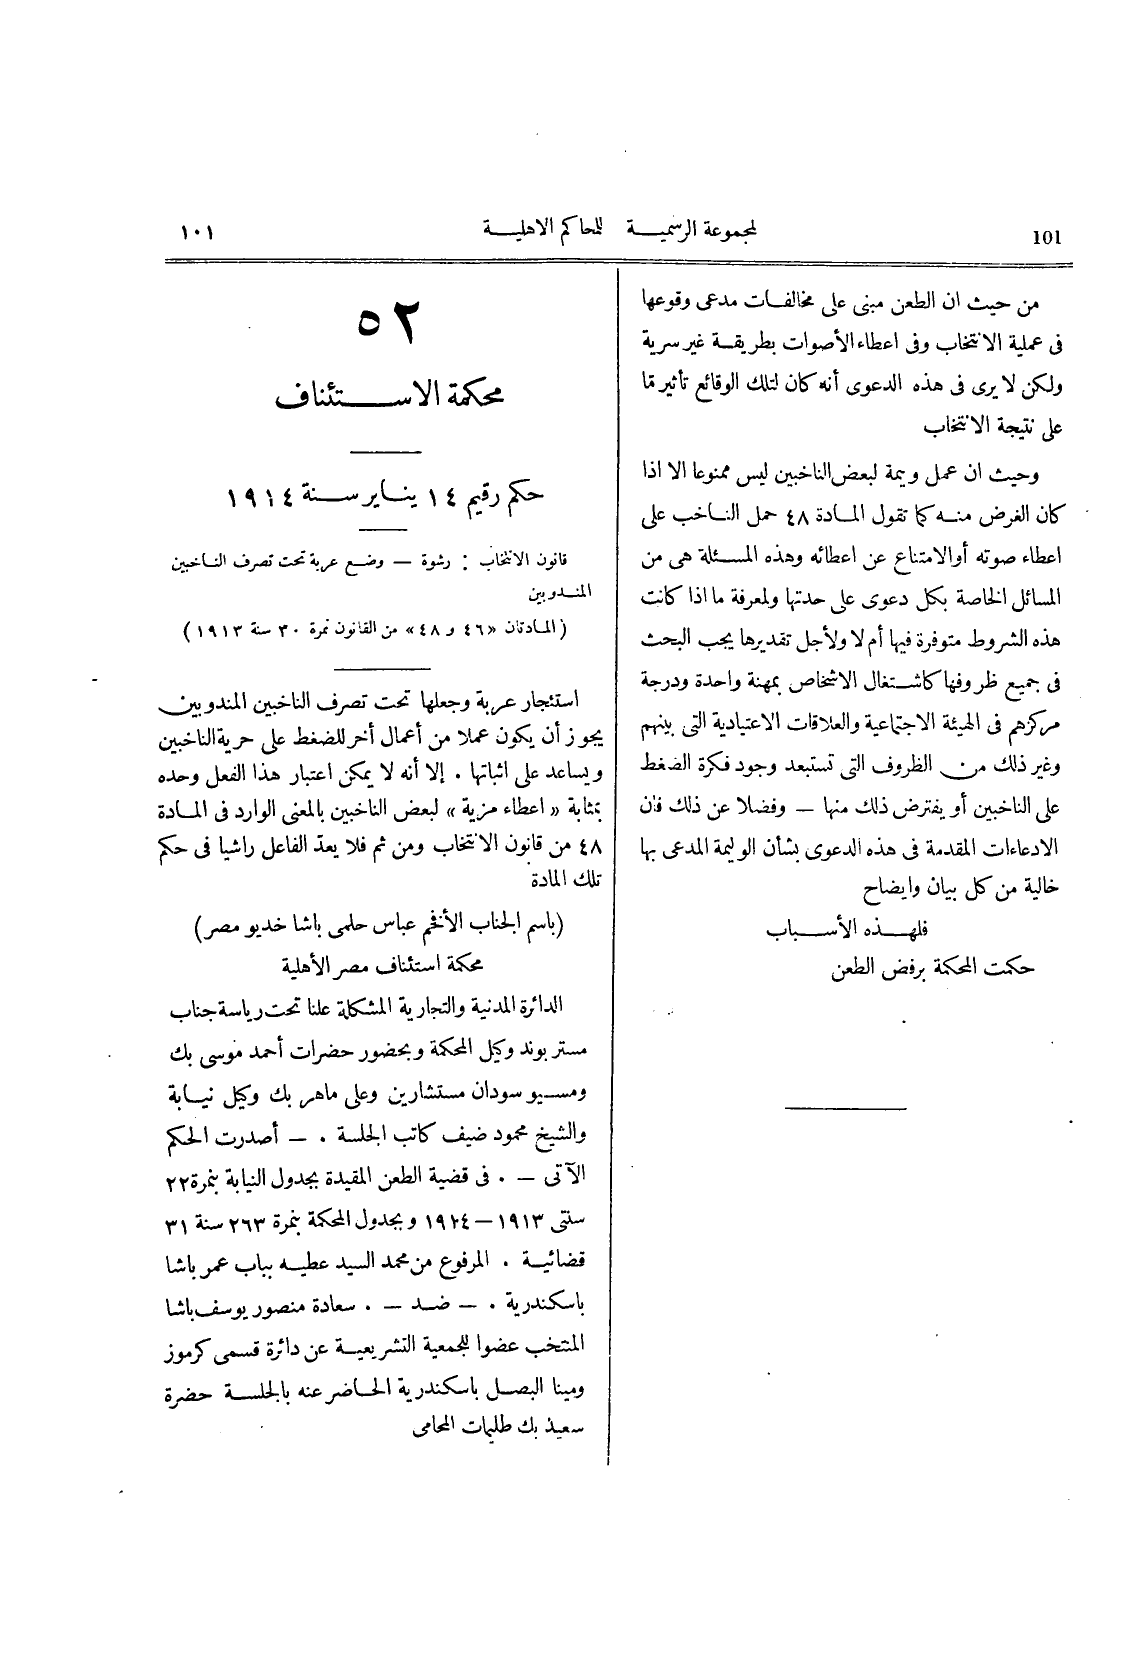 101
لمجموعة الرسمية للمحاكم الاهلية
١٠١
من حيث ان الطعن مبنى على مخالفات مدعى وقوعها
فى عملية الانتخاب وفى اعطاء الأصوات بطريقة غير سرية
ولكن لا يرى فى هذه الدعوى أنه كان لتلك الوقائع تأثير مّا
على نتيجة الانتخاب
وحيث ان عمل ويمة لبعض الناخبين ليس ممنوعا الا اذا
كان الغرض منه كما تقول المادة ٤٨ حمل الناخب على
اعطاء صوته أو الامتناع عن اعطائه وهذه المسئلة هى من
المسائل الخاصة بكل دعوى على حدتها ولمعرفة ما اذا كانت
هذه الشروط متوفرة فيها أم لا ولأجل تقديرها يجب البحث
فى جميع ظروفها كاشتغال الاشخاص بمهنة واحدة ودرجة
مركزهم فى الهيئة الاجتماعية والعلاقات الاعتيادية التى بينهم
وغير ذلك من الظروف التى تستبعد وجود فكرة الضغط
على الناخبين أو يفترض ذلك منها — وفضلا عن ذلك فان
الادعاءات المقدمة فى هذه الدعوى بشأن الوليمة المدعى بها
خالية من كل بيان وايضاح
فلهذه الأسباب
حكمت المحكمة برفض الطعن
٥٢
محكمة الاستئناف
حكم رقيم ١٤ يناير سنة ١٩١٤
قانون الانتخاب : رشوة — وضع عربة تحت تصرف الناخبين
المندوبين
(المادتان «٤٦ و ٤٨» من القانون نمرة ٣٠ سنة ١٩١٣)
استئجار عربة وجعلها تحت تصرف الناخبين المندوبين
يجوز أن يكون عملا من أعمال أخر للضغط على حرية الناخبين
ويساعد على اثباتها . إلا أنه لا يمكن اعتبار هذا الفعل وحده
بمثابة « اعطاء مزية » لبعض الناخبين بالمعنى الوارد فى المادة
٤٨ من قانون الانتخاب ومن ثم فلا يعدّ الفاعل راشيا فى حكم
تلك المادة
(باسم الجناب الأفخم عباس حلمى باشا خديو مصر)
محكمة استئناف مصر الأهلية
الدائرة المدنية والتجارية المشكلة علنا تحت رياسة جناب
مستر بوند وكيل المحكمة وبحضور حضرات أحمد موسى بك
ومسيو سودان مستشارين وعلى ماهر بك وكيل نيابة
والشيخ محمود ضيف كاتب الجلسة . — أصدرت الحكم
الآتى — . فى قضية الطعن المقيدة بجدول النيابة بنمرة ٢٢
سنتى ١٩١٣ — ١٩١٤ وبجدول المحكمة بنمرة ٢٦٣ سنة ٣١
قضائية . المرفوع من محمد السيد عطيه بباب عمر باشا
باسكندرية . — ضد — . سعادة منصور يوسف باشا
المنتخب عضوا للجمعية التشريعية عن دائرة قسمى كرموز
ومينا البصل باسكندرية الحاضر عنه بالجلسة حضرة
سعيد بك طليمات المحامى